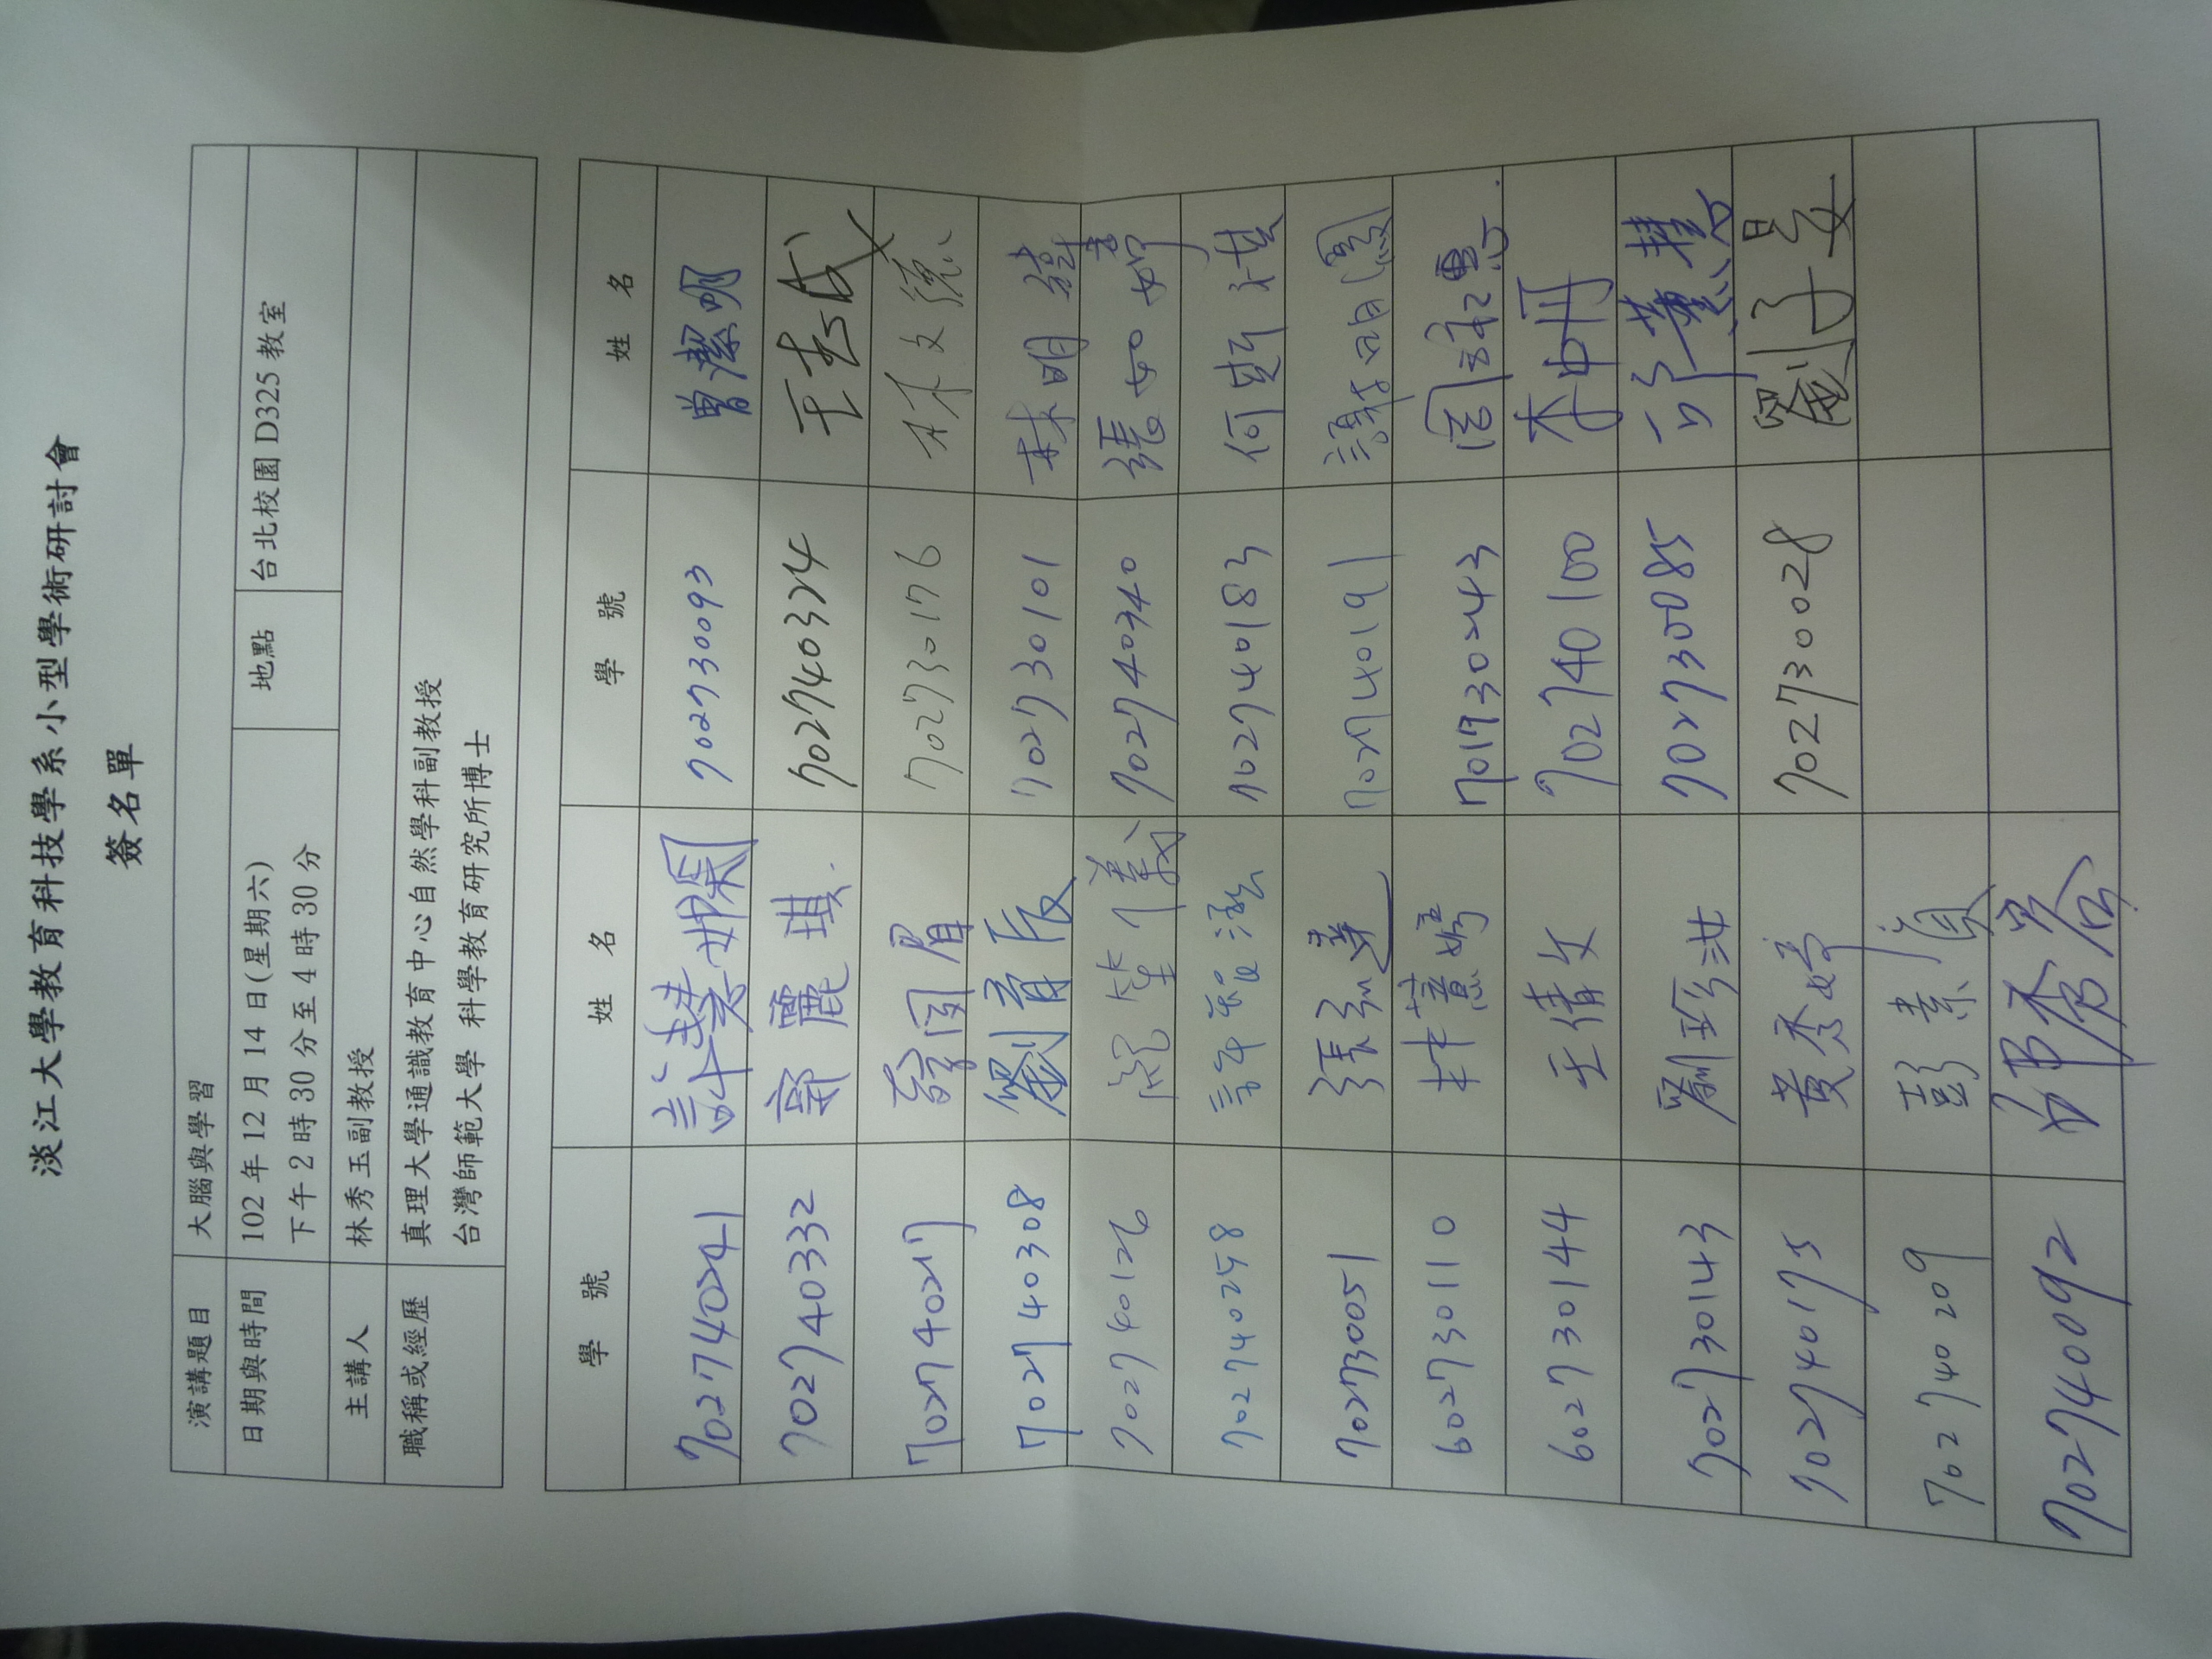 淡江大學教育科技學系小型學術研討會
簽名單
演講題目 大腦與學習
日期與時間 102 年 12 月 14 日(星期六) 地點 台北校園 D325 教室
下午 2 時 30 分至 4 時 30 分
主講人 林秀玉副教授
職稱或經歷 真理大學通識教育中心自然學科副教授
台灣師範大學 科學教育研究所博士
學 號 姓 名 學 號 姓 名
702740241 702730093 曾潔明
702740332 郭麗琪 702740324 王志成
702740217 702730176 林文
702740308 劉育辰 702730101 林明
702740126 702740340 張如
702740258 702740183 何
702730051 張弘達 702740191
602730110 林薏婷 701730243
602730144 王倩文 702740100 李
702730143 劉珍汝 702730085 慧
702740175 黃秀婷 702730028 劉子晏
702740209 彭素貞
702740092 邱秀蓉